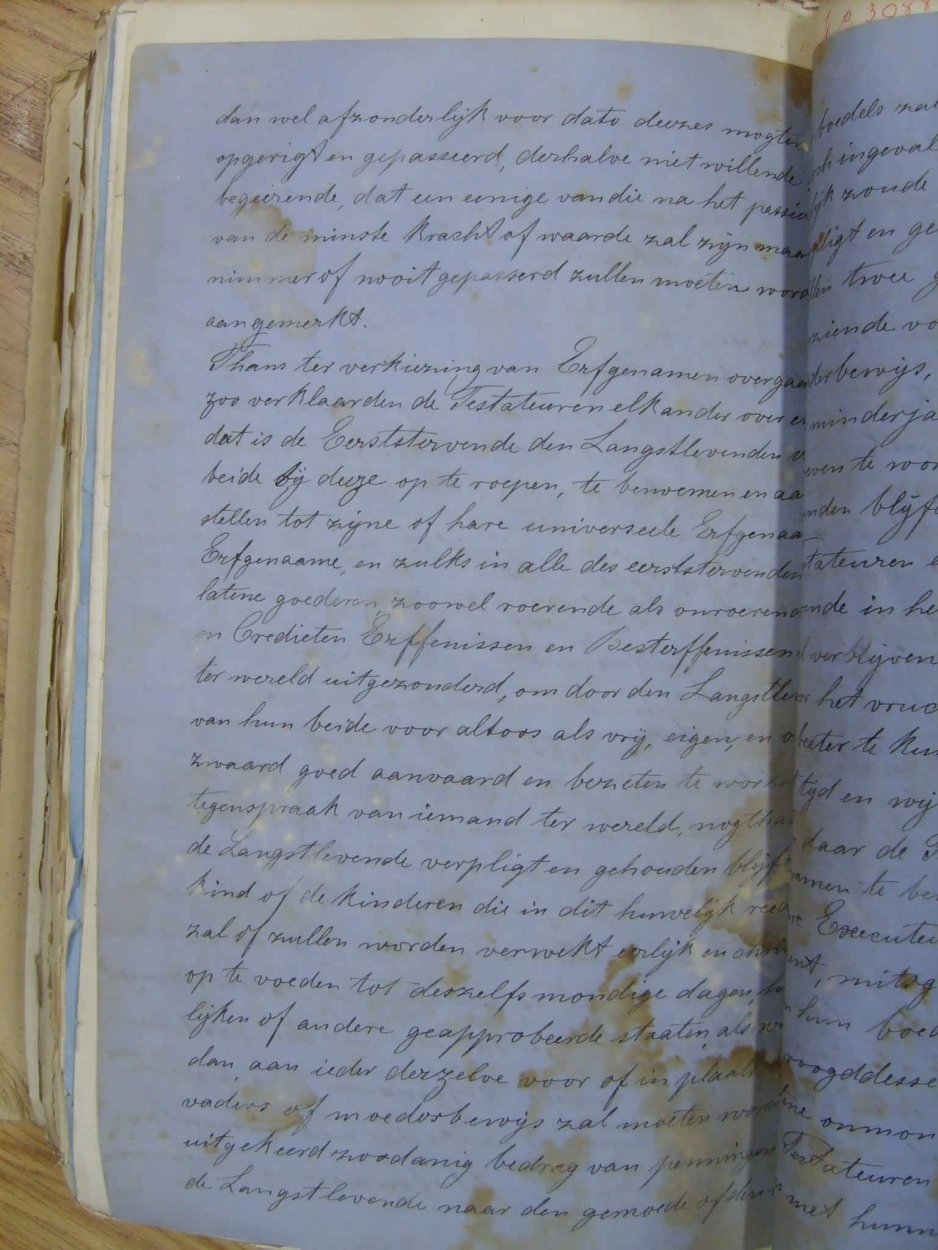 dan wel afzonderlijk voor dato deezes mogten
opgerigt en gepasseerd, derhalve niet willende
begeerende, dat een eenige van die na het passie
van de minste kracht of waarde zal zijn maa
nimmer of nooit gepasseerd zullen moeten word
aangemerkt.
Thans ter verkiezing van Erfgenamen overgaa
zoo verklaarden de Testateuren elkander over e
dat is de Eerststervende den Langstlevenden
beide bij deeze op te roepen, te benoemen en aa
stellen tot zijne of hare universeele Erfgenaa
Erfgenaame, en zulks in alle des eerststervenden
latene goederen, zoowel roerende als onroeren
en Credieten Erffenissen en Besterffenissen
ter wereld uitgezonderd, om door den Langstle
van hun beide voor altoos als vrij, eigen, en o
zwaard goed aanvaard en bezeten te word
tegenspraak van iemand ter wereld, nogtha
de Langstlevende verpligt en gehouden blijf
kind of de kinderen die in dit huwelijk reed
zal of zullen worden verwekt eerlijk en
op te voeden tot deszelfs mondige dagen,
lijken of andere geapprobeerde staaten, als
dan, aan ieder derzelve voor of in plaats
vaders of moedersbewijs zal moeten word
uitgekeerd zoodanig bedrag van penningen
de Langstlevende naar den gemoede of
3088
boedels zal
ingeval
lijk zoude
ligt en ge
twee
ziende vo
derbewijs,
minderja
even te wor
nden blijf
tateuren e
nde in he
verblijven
het vruc
beeter te kun
tijd en wij
daar de
amen te be
Executeu
mitsg
hun boed
voogddesse
onmon
Testateuren
met hunn